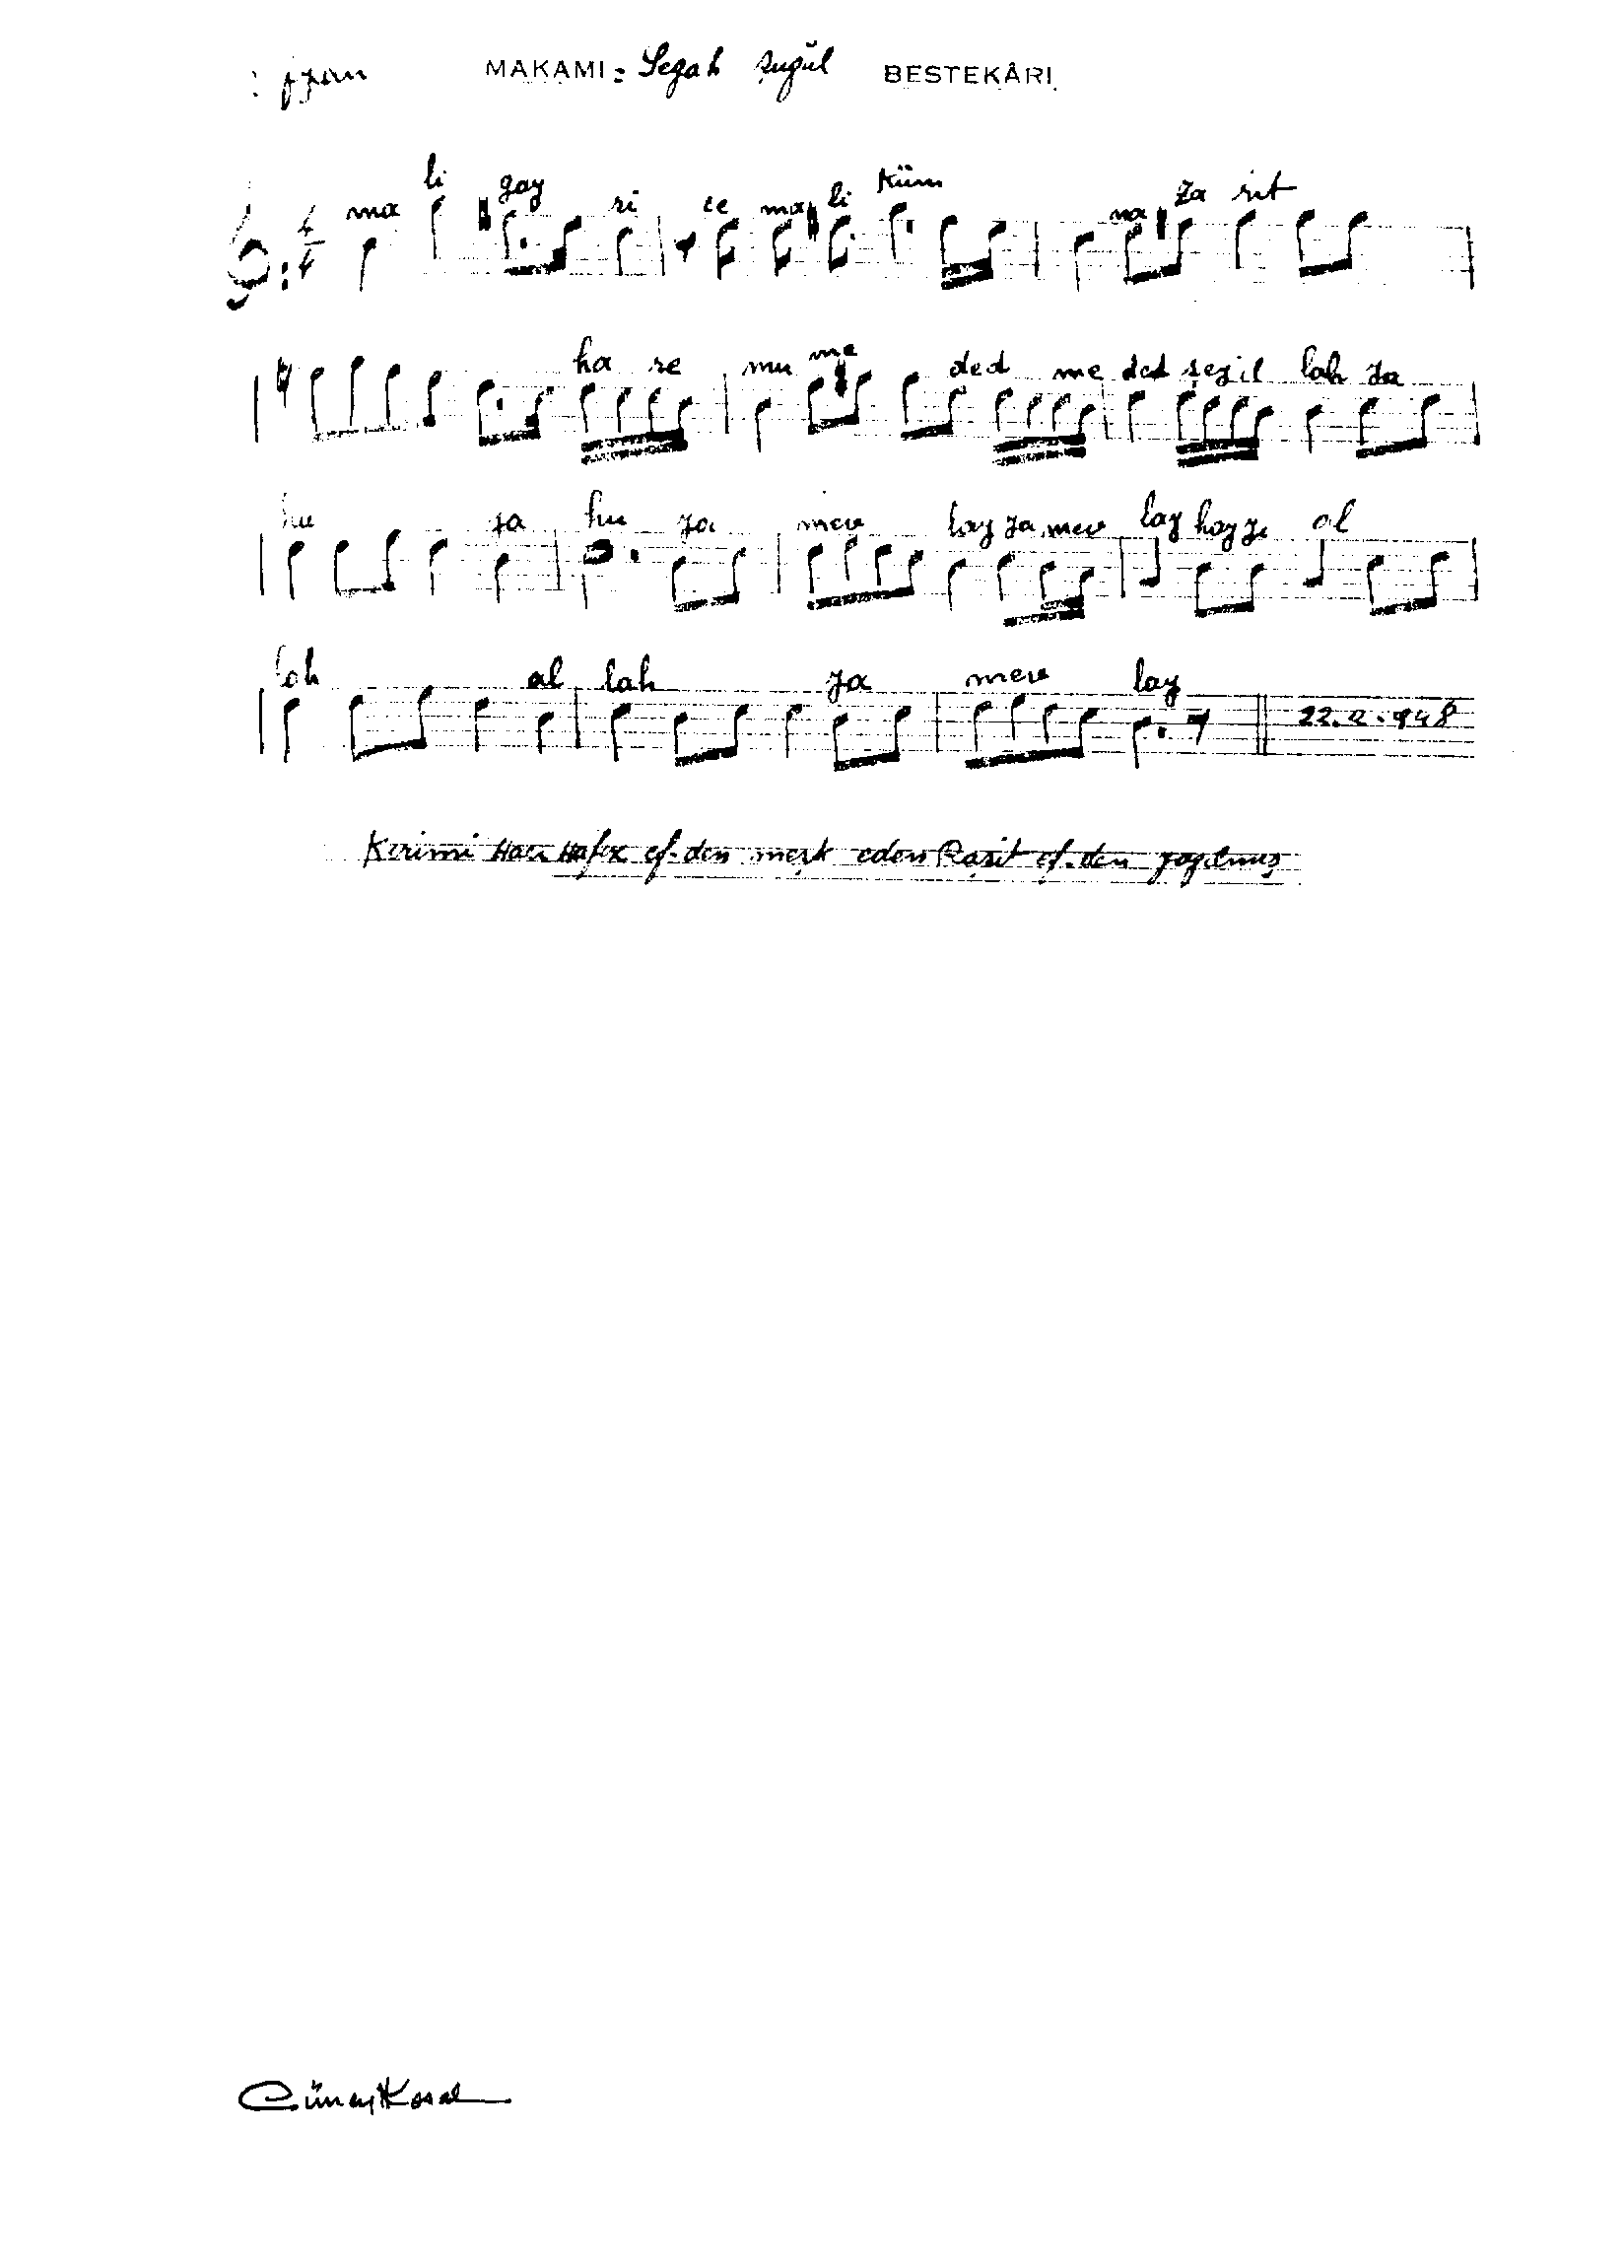 MAKAMI: Segah Şuğûl BESTEKÂRI
ma li gay ri ce ma li küm na za rit
ha re mu me ded me ded şey il lah ya
hu ya hu ya mev lay ya mev lay hay ya al
lah al lah ya mev lay 22.2.948
Hacı Hafız ef.den meşk eden Raşit ef.den
Cüneyt Kosal